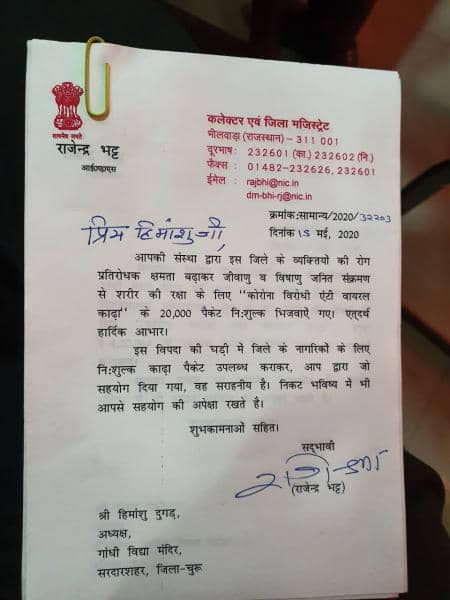 सत्यमेव जयते
राजेन्द्र भट्ट
आई०ए०एस
कलेक्टर एवं जिला मजिस्ट्रेट
भीलवाड़ा (राजस्थान) – 311 001
दूरभाष: 232601 (का.) 232602 (नि.)
फैक्स : 01482-232626, 232601
ईमेल : rajbhi@nic.in
dm-bhi-rj@nic.in
क्रमांक:सामान्य/2020/32203
दिनांक 15 मई, 2020
प्रिय हिमांशु जी,
आपकी संस्था द्वारा इस जिले के व्यक्तियों की रोग
प्रतिरोधक क्षमता बढ़ाकर जीवाणु व विषाणु जनित संक्रमण
से शरीर की रक्षा के लिए "कोरोना विरोधी एंटी वायरल
काढ़ा" के 20,000 पैकेट निःशुल्क भिजवाऐं गए। एत्दर्थ
हार्दिक आभार।
इस विपदा की घड़ी में जिले के नागरिकों के लिए
निःशुल्क काढ़ा पैकेट उपलब्ध कराकर, आप द्वारा जो
सहयोग दिया गया, वह सराहनीय है। निकट भविष्य में भी
आपसे सहयोग की अपेक्षा रखते है।
शुभकामनाओं सहित।
सद्भावी
(राजेन्द्र भट्ट)
श्री हिमांशु दुगड़,
अध्यक्ष,
गांधी विद्या मंदिर,
सरदारशहर, जिला-चुरू